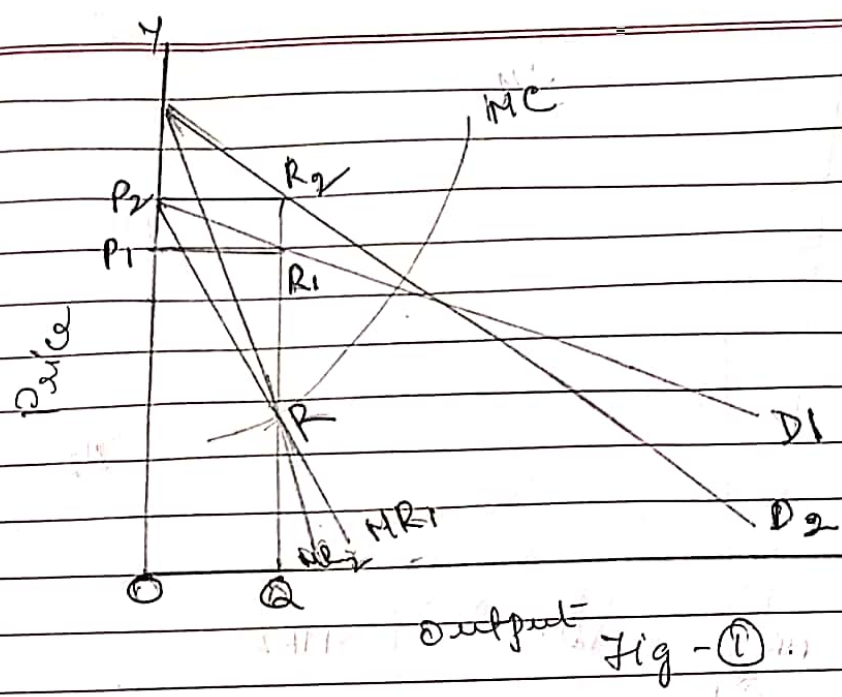 Y
MC
P2
R2
P1
R1
Price
R
D1
MR1
D2
MR2
O
Q
Output
Fig - ①